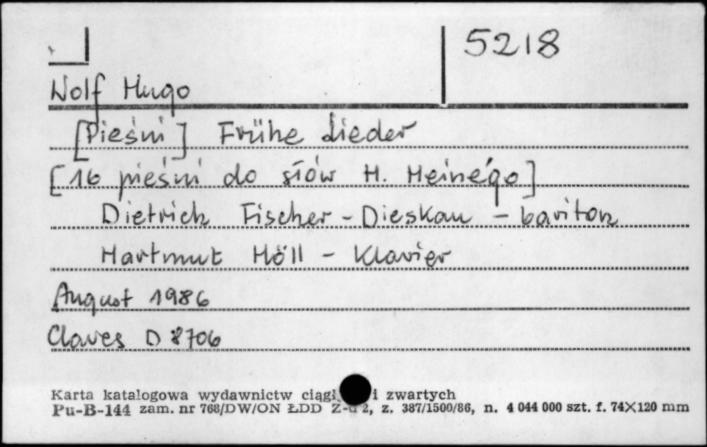 5218
Wolf Hugo
[Pieśni] Frühe Lieder
[16 pieśni do słów H. Heinego]
Dietrich Fischer-Dieskau - bariton
Hartmut Höll - Klavier
August 1986
Claves D 8706
Karta katalogowa wydawnictw ciągł i zwartych
Pu-B-144 zam. nr 768/DW/ON ŁDD 2, z. 387/1500/86, n. 4 044 000 szt. f. 74×120 mm